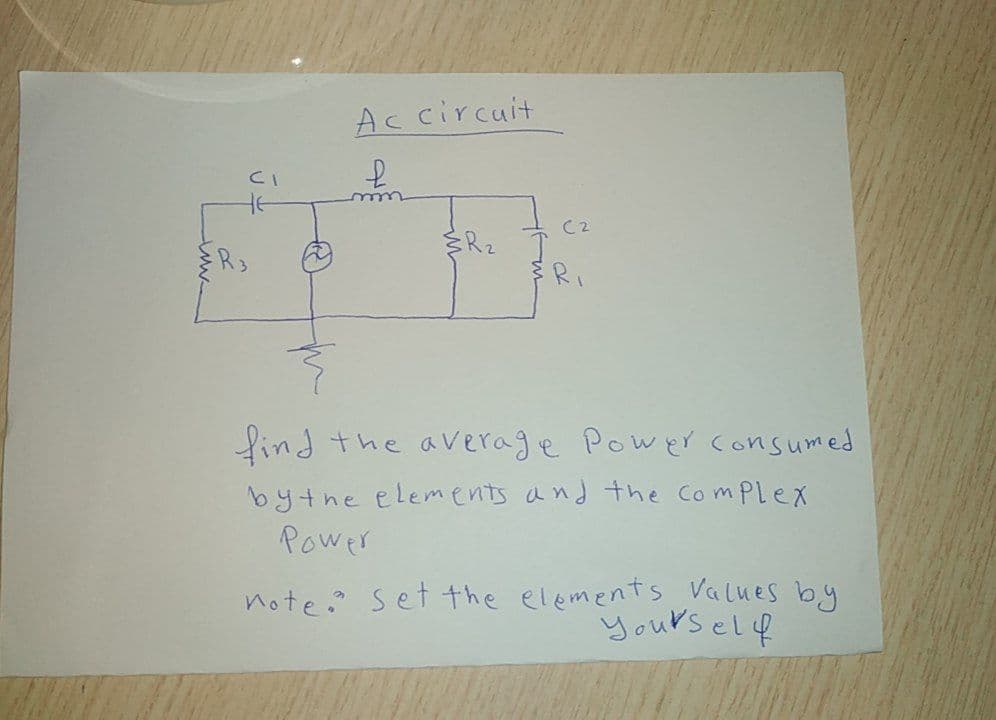 Ac circuit
C1
l
C2
R2
R3
R1
find the average Power consumed
by the elements and the complex
Power
note: set the elements values by
yourself